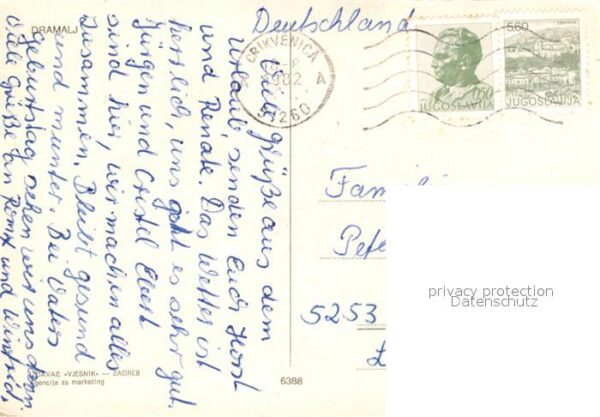 DRAMALJ
Deutschland
CRIKVENICA
82 A
51260
0,50
JUGOSLAVIJA
5.60
JUGOSLAVIJA
Liebe Grüße aus dem
Urlaub, senden Euch Horst
und Renate. Das Wetter ist
herrlich, uns geht es sehr gut.
Jürgen und Cristel Ebert
sind hier, wir machen alles
zusammen. Bleibt gesund
und munter. Bei Vaters
Geburtstag sehen wir uns dann.
Viele Grüße an und Winfried.
Fami
Pete
5253
privacy protection
Datenschutz
IZDAVAČ «VJESNIK» — ZAGREB
agencija za marketing
6388